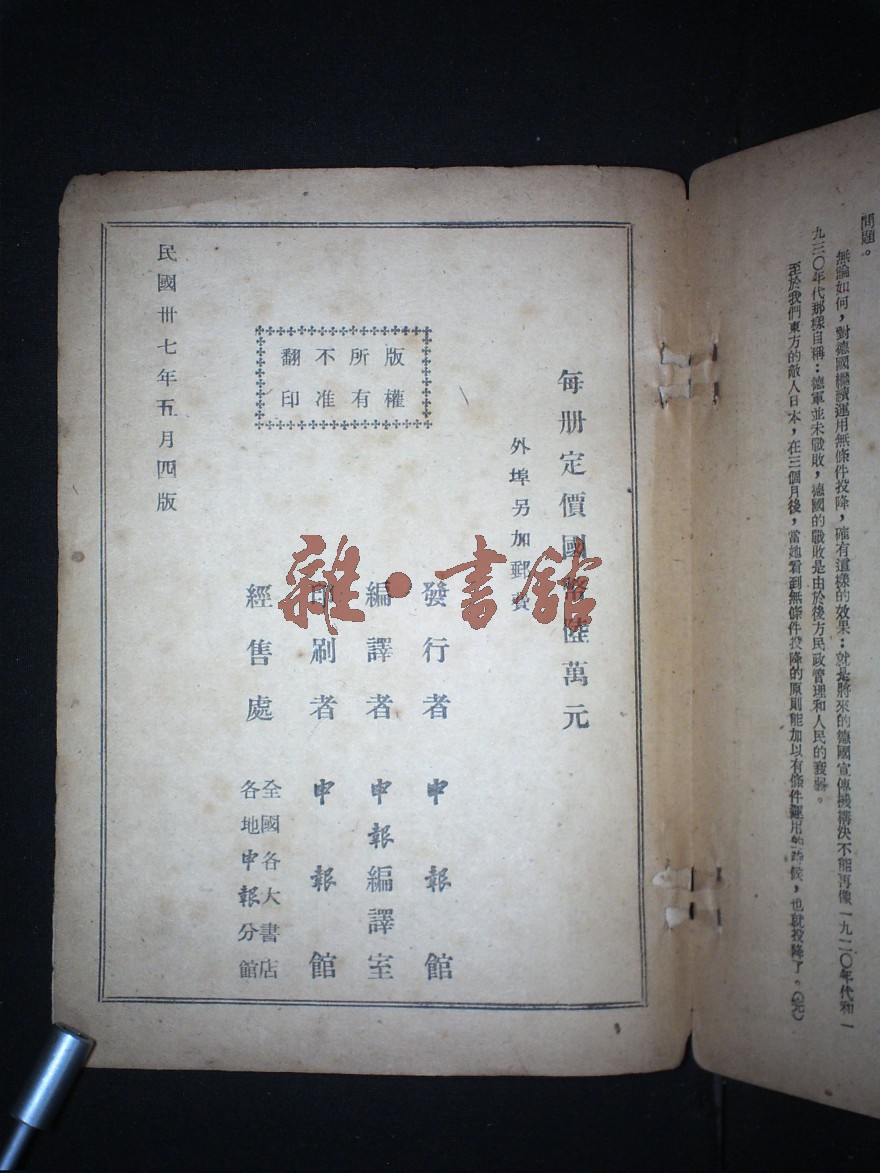 問題。
無論如何，對德國繼續運用無條件投降，確有這樣的效果：就是將來的德國宣傳機構決不能再像一九二〇年代和一
九三〇年代那樣自稱：德軍並未戰敗，德國的戰敗是由於後方民政管理和人民的衰弱。
至於我們東方的敵人日本，在三個月後，當她看到無條件投降的原則能加以有條件運用的時候，也就投降了。（完）
每册定價國幣陸萬元
外埠另加郵費
版權
所有
不准
翻印
發行者 申報館
編譯者 申報編譯室
印刷者 申報館
經售處 全國各大書店
各地申報分館
民國卅七年五月四版
雜·書館